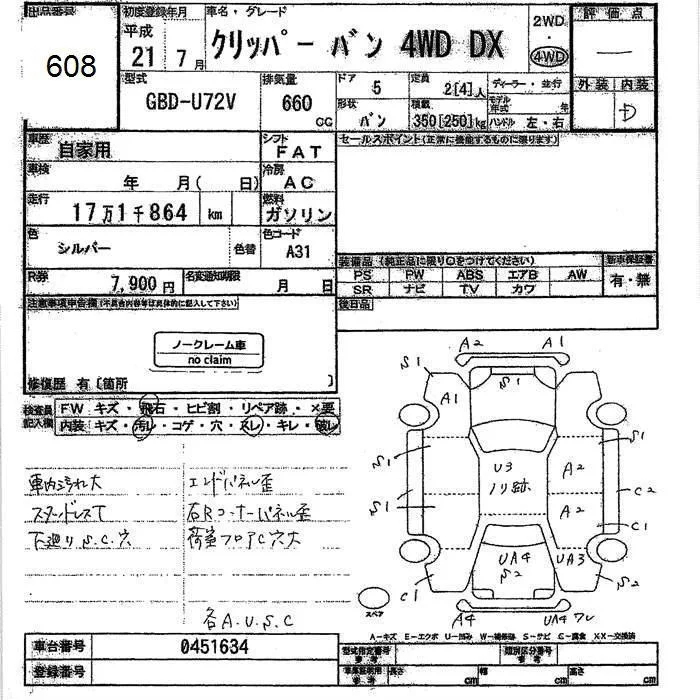 出品番号
608
初度登録年月
平成
21 7月
車名・グレード
クリッパー バン 4WD DX
2WD
・
4WD
評価点
—
外装 内装
D
型式
GBD-U72V
排気量
660
cc
ドア
5
定員
2[4]人
ディーラー・並行
モデル年式 年
形状
バン
積載
350[250]kg
ハンドル 左・右
車歴
自家用
シフト
FAT
セールスポイント(正常に機能するものに限ります)
車検
年 月( 日)
冷房
AC
走行
17万1千864 km
燃料
ガソリン
色
シルバー
色替
色コード
A31
装備品 (純正品に限り○をつけてください)
新車保証書
PS PW ABS エアB AW
SR ナビ TV カワ
有・無
R券
7,900円
名変通知期限
月 日
後日品
注意事項申告欄(不具合内容等は具体的に記入して下さい)
ノークレーム車
no claim
修復歴 有〔箇所 〕
検査員記入欄
FW キズ・飛石・ヒビ割・リペア跡・×要
内装 キズ・汚レ・コゲ・穴・スレ・キレ・破レ
車内汚れ大
エンドパネル歪
スタッドレスT
右Rコーナーパネル歪
下廻りS.C.穴
荷室フロアC穴大
各A.U.S.C
A2 A1
S1 S1 S1
A1
S1 S1
U3
ノリ跡
A2
S1 C2
A2
S1 C1
UA4
S2
UA3
C1 S2
スペア
A4 UA4ワレ
A-キズ E-エクボ U-凹み W-補修跡 S-サビ C-腐食 XX-交換済
車台番号
0451634
登録番号
型式指定番号
参考
類別区分番号
参考
長さ cm
幅 cm
高さ cm